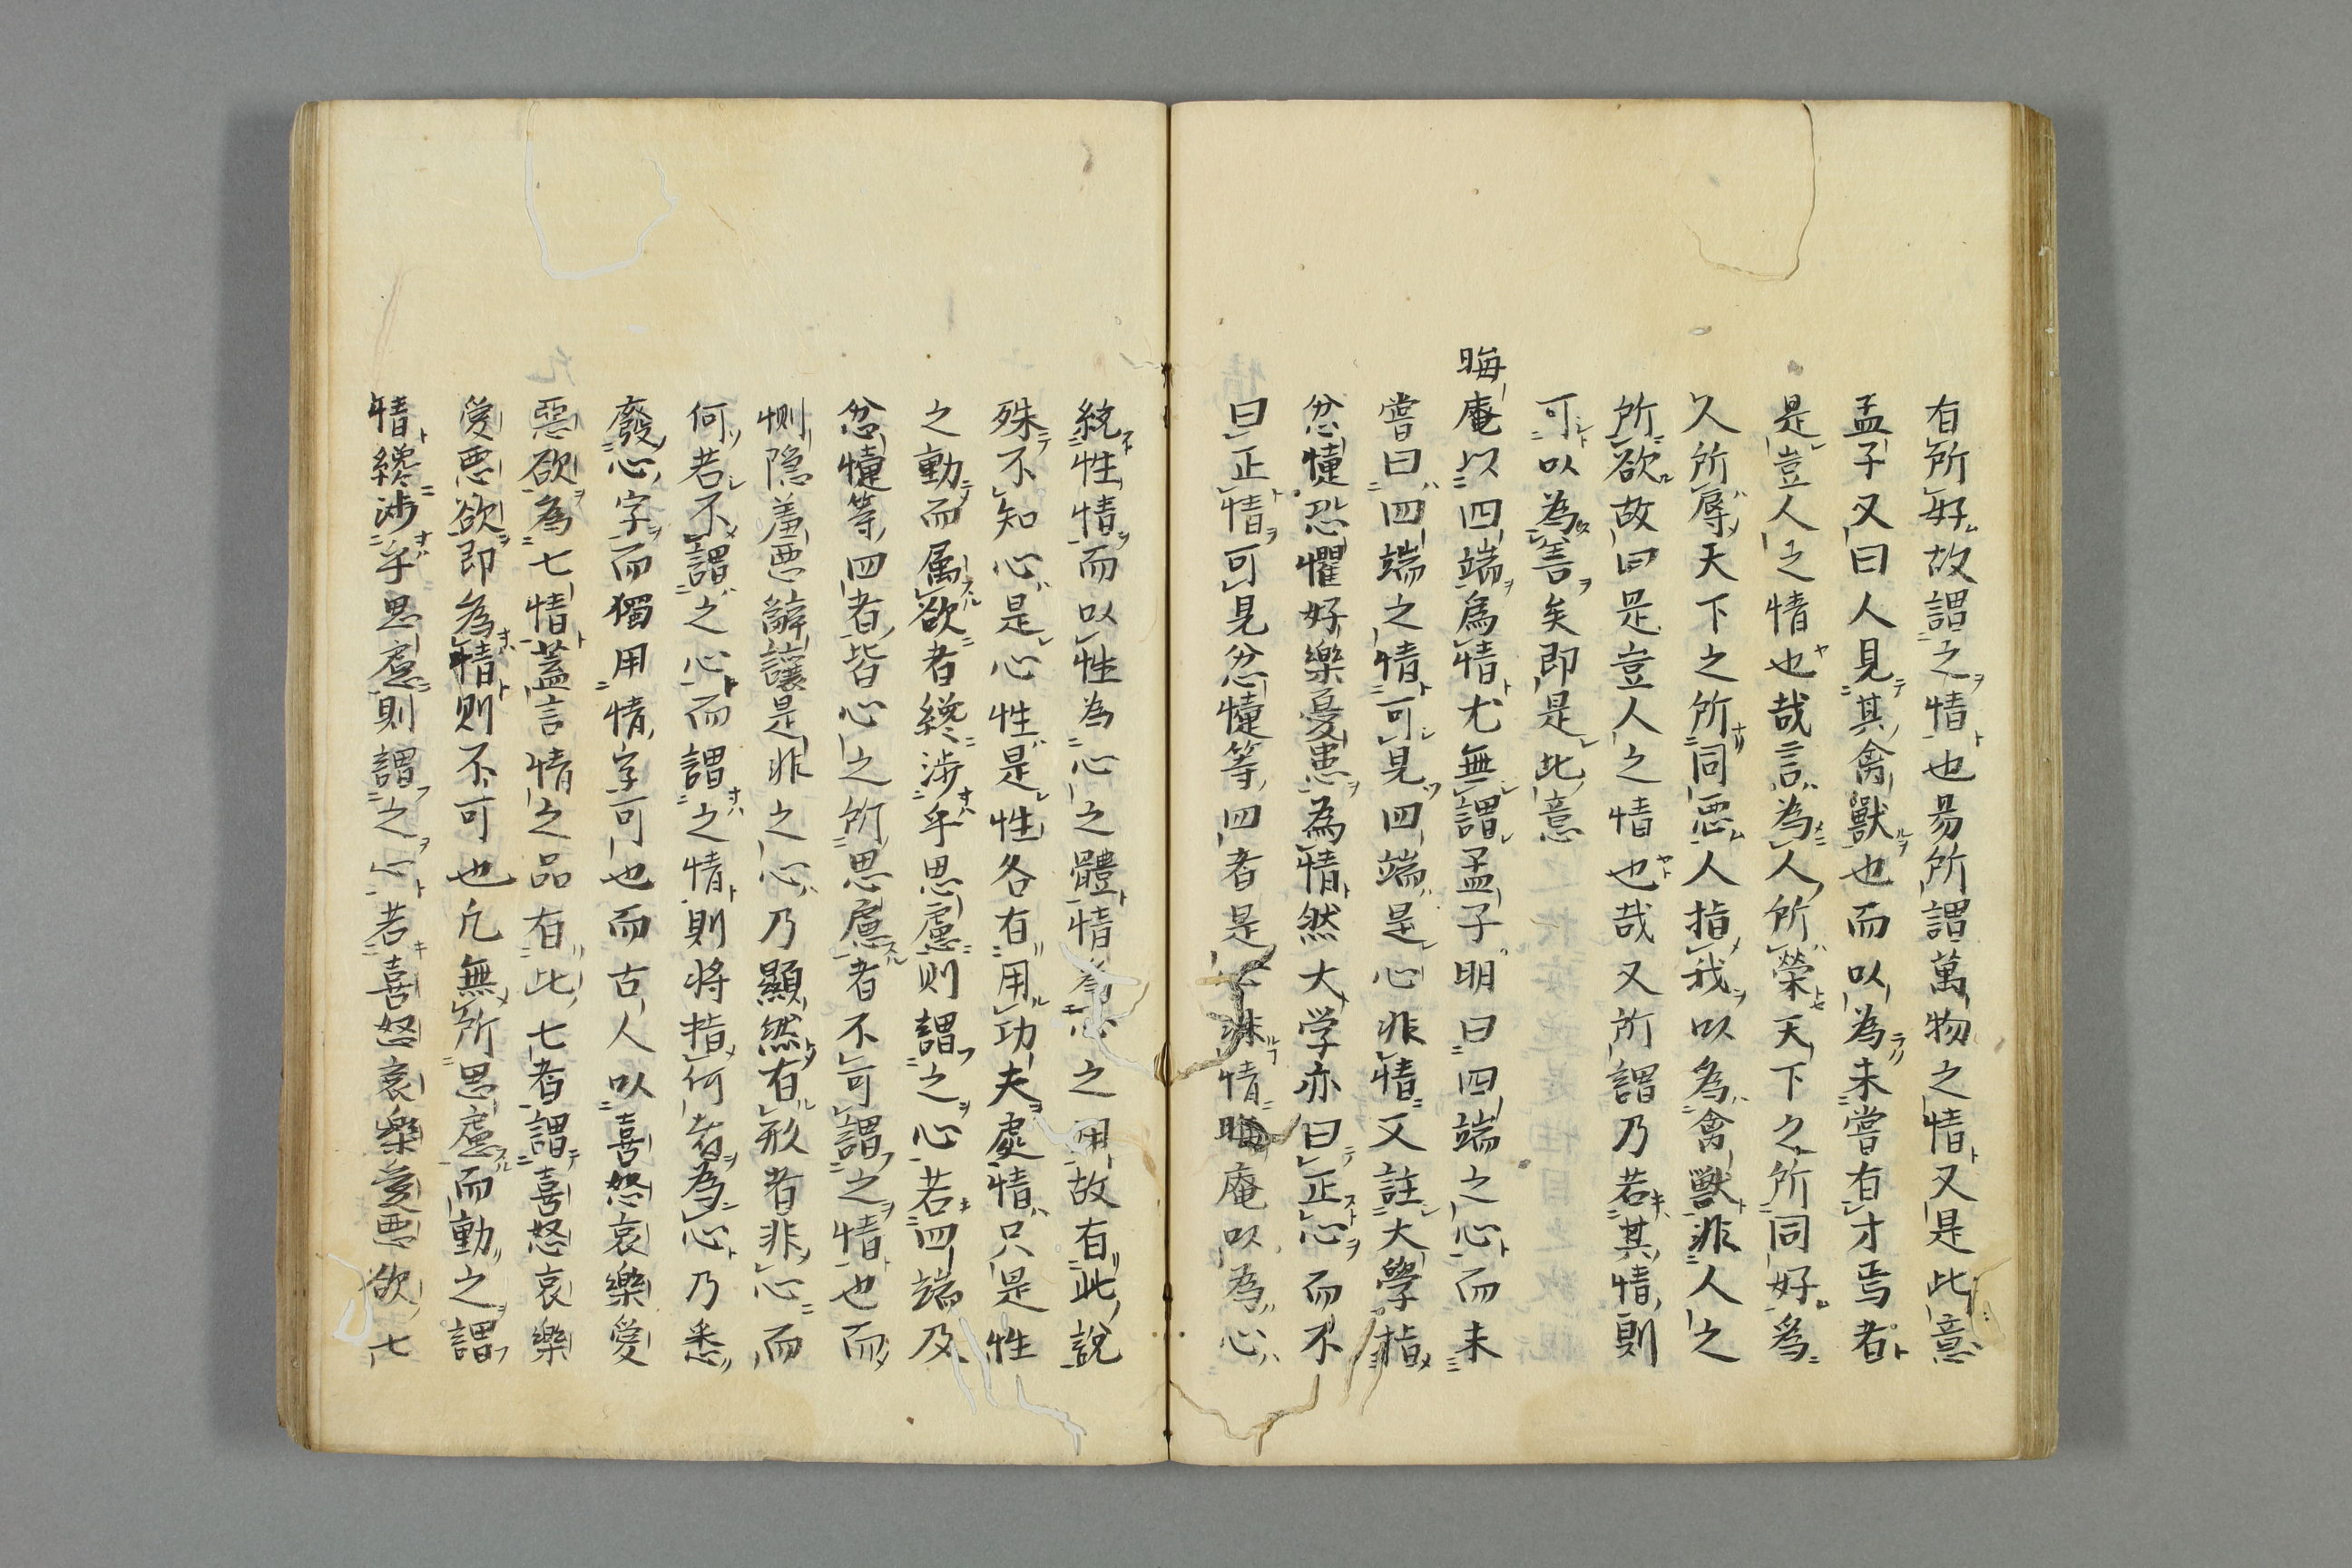 有所好故謂之情也易所謂萬物之情又是此意
孟子又曰人見其禽獸也而以為未嘗有才焉者
是豈人之情也哉言為人所榮天下之所同好為
人所辱天下之所同惡人指我以為禽獸非人之
所欲故曰是豈人之情也哉又所謂乃若其情則
可以為善矣即是此意
晦庵以四端為情尤無謂孟子明曰四端之心而未
嘗曰四端之情可見四端是心非情又註大學指
忿懥恐懼好樂憂患為情然大学亦曰正心而不
曰正情可見忿懥等四者是心非情晦庵以為心
統性情而以性為心之體情為心之用故有此說
殊不知心是心性是性各有用功夫處情只是性
之動而属欲者纔涉乎思慮則謂之心若四端及
忿懥等四者皆心之所思慮者不可謂之情也而
惻隐羞悪辭讓是非之心乃顯然有形者非心而
何若不謂之心而謂之情則将指何者為心乃悉
廢心字而獨用情字可也而古人以喜怒哀樂愛
惡欲為七情蓋言情之品有此七者謂喜怒哀樂
愛悪欲即為情則不可也凡無所思慮而動之謂
情纔涉乎思慮則謂之心若喜怒哀樂愛悪欲七